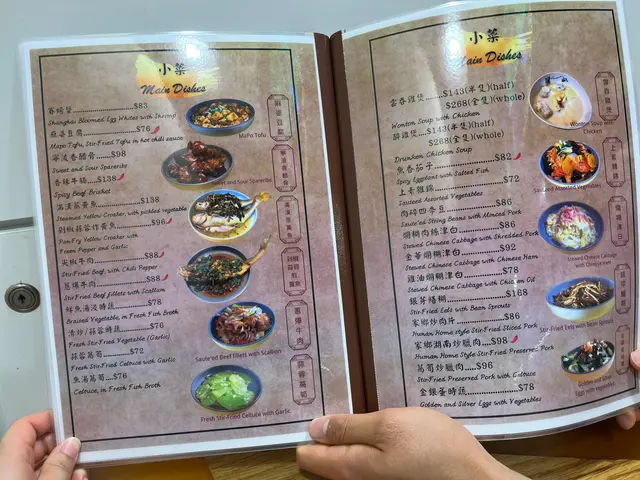 小菜
Main Dishes
賽螃蟹......$83
Shanghai Bloomed Egg Whites with Shrimp
麻婆豆腐......$76
Mapo Tofu, Stir-Fried Tofu in hot chili sauce
寧波香醋骨......$98
Sweet and Sour Spareribs
香辣牛腩......$138
Spicy Beef Brisket
滿漢蒸黃魚......$138
Steamed Yellow Croaker, with pickled vegetable
剁椒蒜蓉炸黃魚......$96
Pan-Fry Yellow Croaker with
Fresh Pepper and Garlic
尖椒牛肉......$88
Stir-Fried Beef, with Chili Pepper
蔥爆牛肉......$88
Stir-Fried Beef fillets with Scallion
鮮魚湯浸時蔬......$78
Braised Vegetable, in Fresh Fish Broth
清炒/蒜蓉時蔬......$76
Fresh Stir-Fried Vegetable (Garlic)
蒜蓉萵筍......$72
Fresh Stir-Fried Celtuce with Garlic
魚湯萵筍......$76
Celtuce, in Fresh Fish Broth
麻婆豆腐
MaPo Tofu
Sweet and Sour Spareribs
滿漢蒸黃魚
剁椒蒜蓉炸黃魚
蔥爆牛肉
Saute'ed Beef fillets with Scallion
蒜蓉萵筍
Fresh Stir-Fried Celtuce with Garlic
小菜
Main Dishes
雲吞雞煲......$143(半隻)(half)
$268(全隻)(whole)
Wonton Soup with Chicken
醉雞煲......$143(半隻)(half)
$268(全隻)(whole)
Drunken Chicken Soup
魚香茄子......$82
Spicy Eggplant with Salted Fish
上素雜錦......$72
Sauteed Assorted Vegetables
肉碎四季豆......$86
Saute'ed String Beans with Minced Pork
醃糊肉絲津白......$86
Stewed Chinese Cabbage with Shredded Pork
金華醃糊津白......$92
Stewed Chinese Cabbage with Chinese Ham
雞油醃糊津白......$78
Stewed Chinese Cabbage with Chicken Oil
銀芽鱔糊......$168
Stir-Fried Eels with Bean Sprouts
家鄉炒肉片......$86
Hunan Home style Stir-Fried Sliced Pork
家鄉湖南炒臘肉......$98
Hunan Home Style Stir-Fried Preserved Pork
萵筍炒臘肉......$96
Stir-Fried Preserved Pork with Celtuce
金銀蛋時蔬......$78
Golden and Silver Eggs with Vegetables
雲吞雞煲
Wonton Soup with
Chicken
上素雜錦
Sauteed Assorted Vegetables
Stewed Chinese Cabbage
with Chinese Ham
銀芽鱔糊
Stir-Fried Eels with Bean Sprouts
Eggs with vegetables